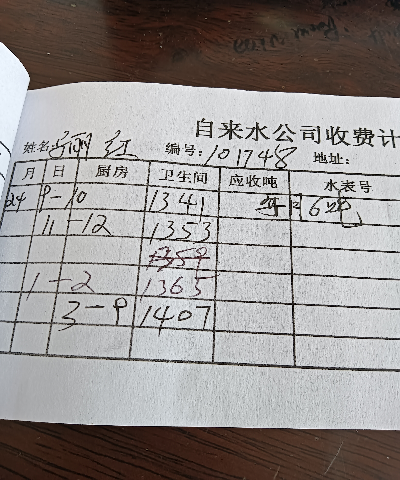 自来水公司收费计
姓名 丽红 编号:101748 地址:
月 日 厨房 卫生间 应收吨 水表号
24 9-10 1341
11-12 1353
1359
1-2 1365
3-9 1407